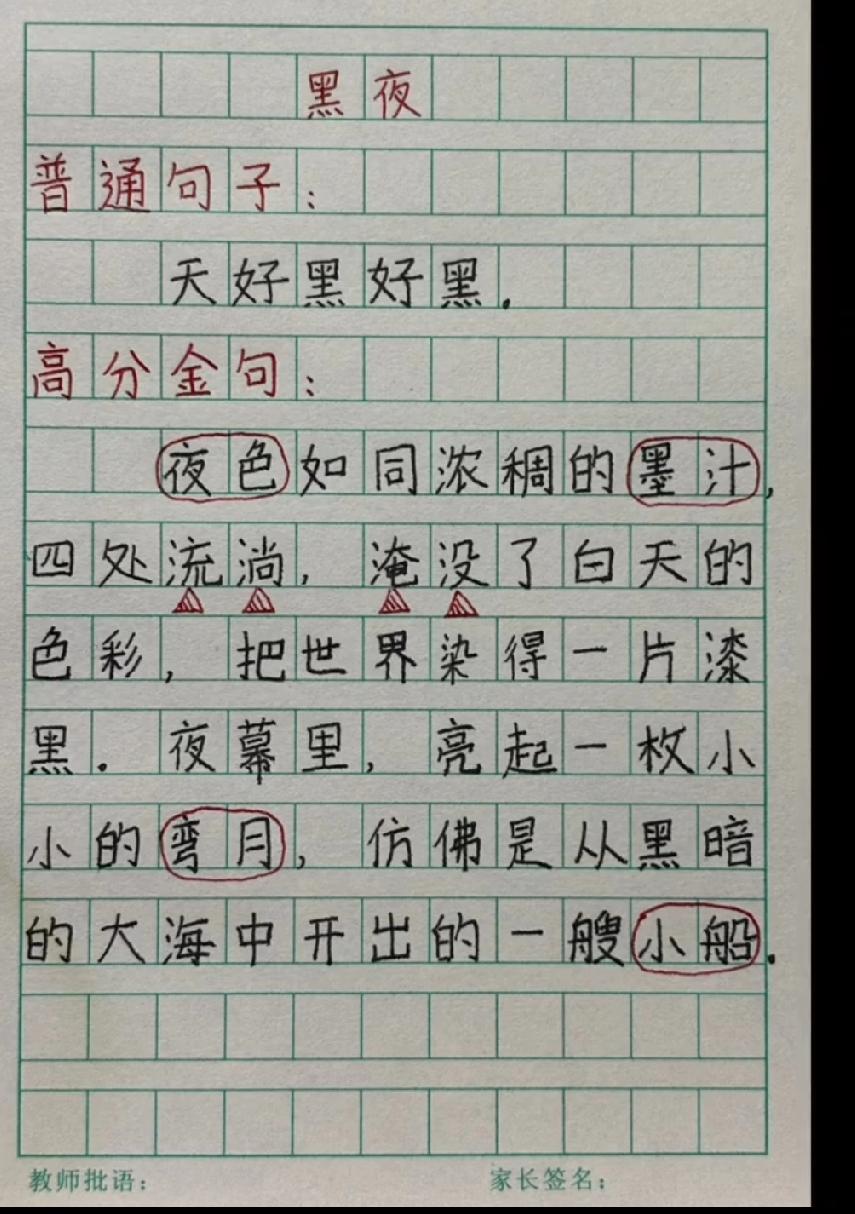 黑夜
普通句子：
天好黑好黑.
高分金句：
夜色如同浓稠的墨汁,
四处流淌, 淹没了白天的
色彩, 把世界染得一片漆
黑. 夜幕里, 亮起一枚小
小的弯月, 仿佛是从黑暗
的大海中开出的一艘小船.
教师批语： 家长签名：